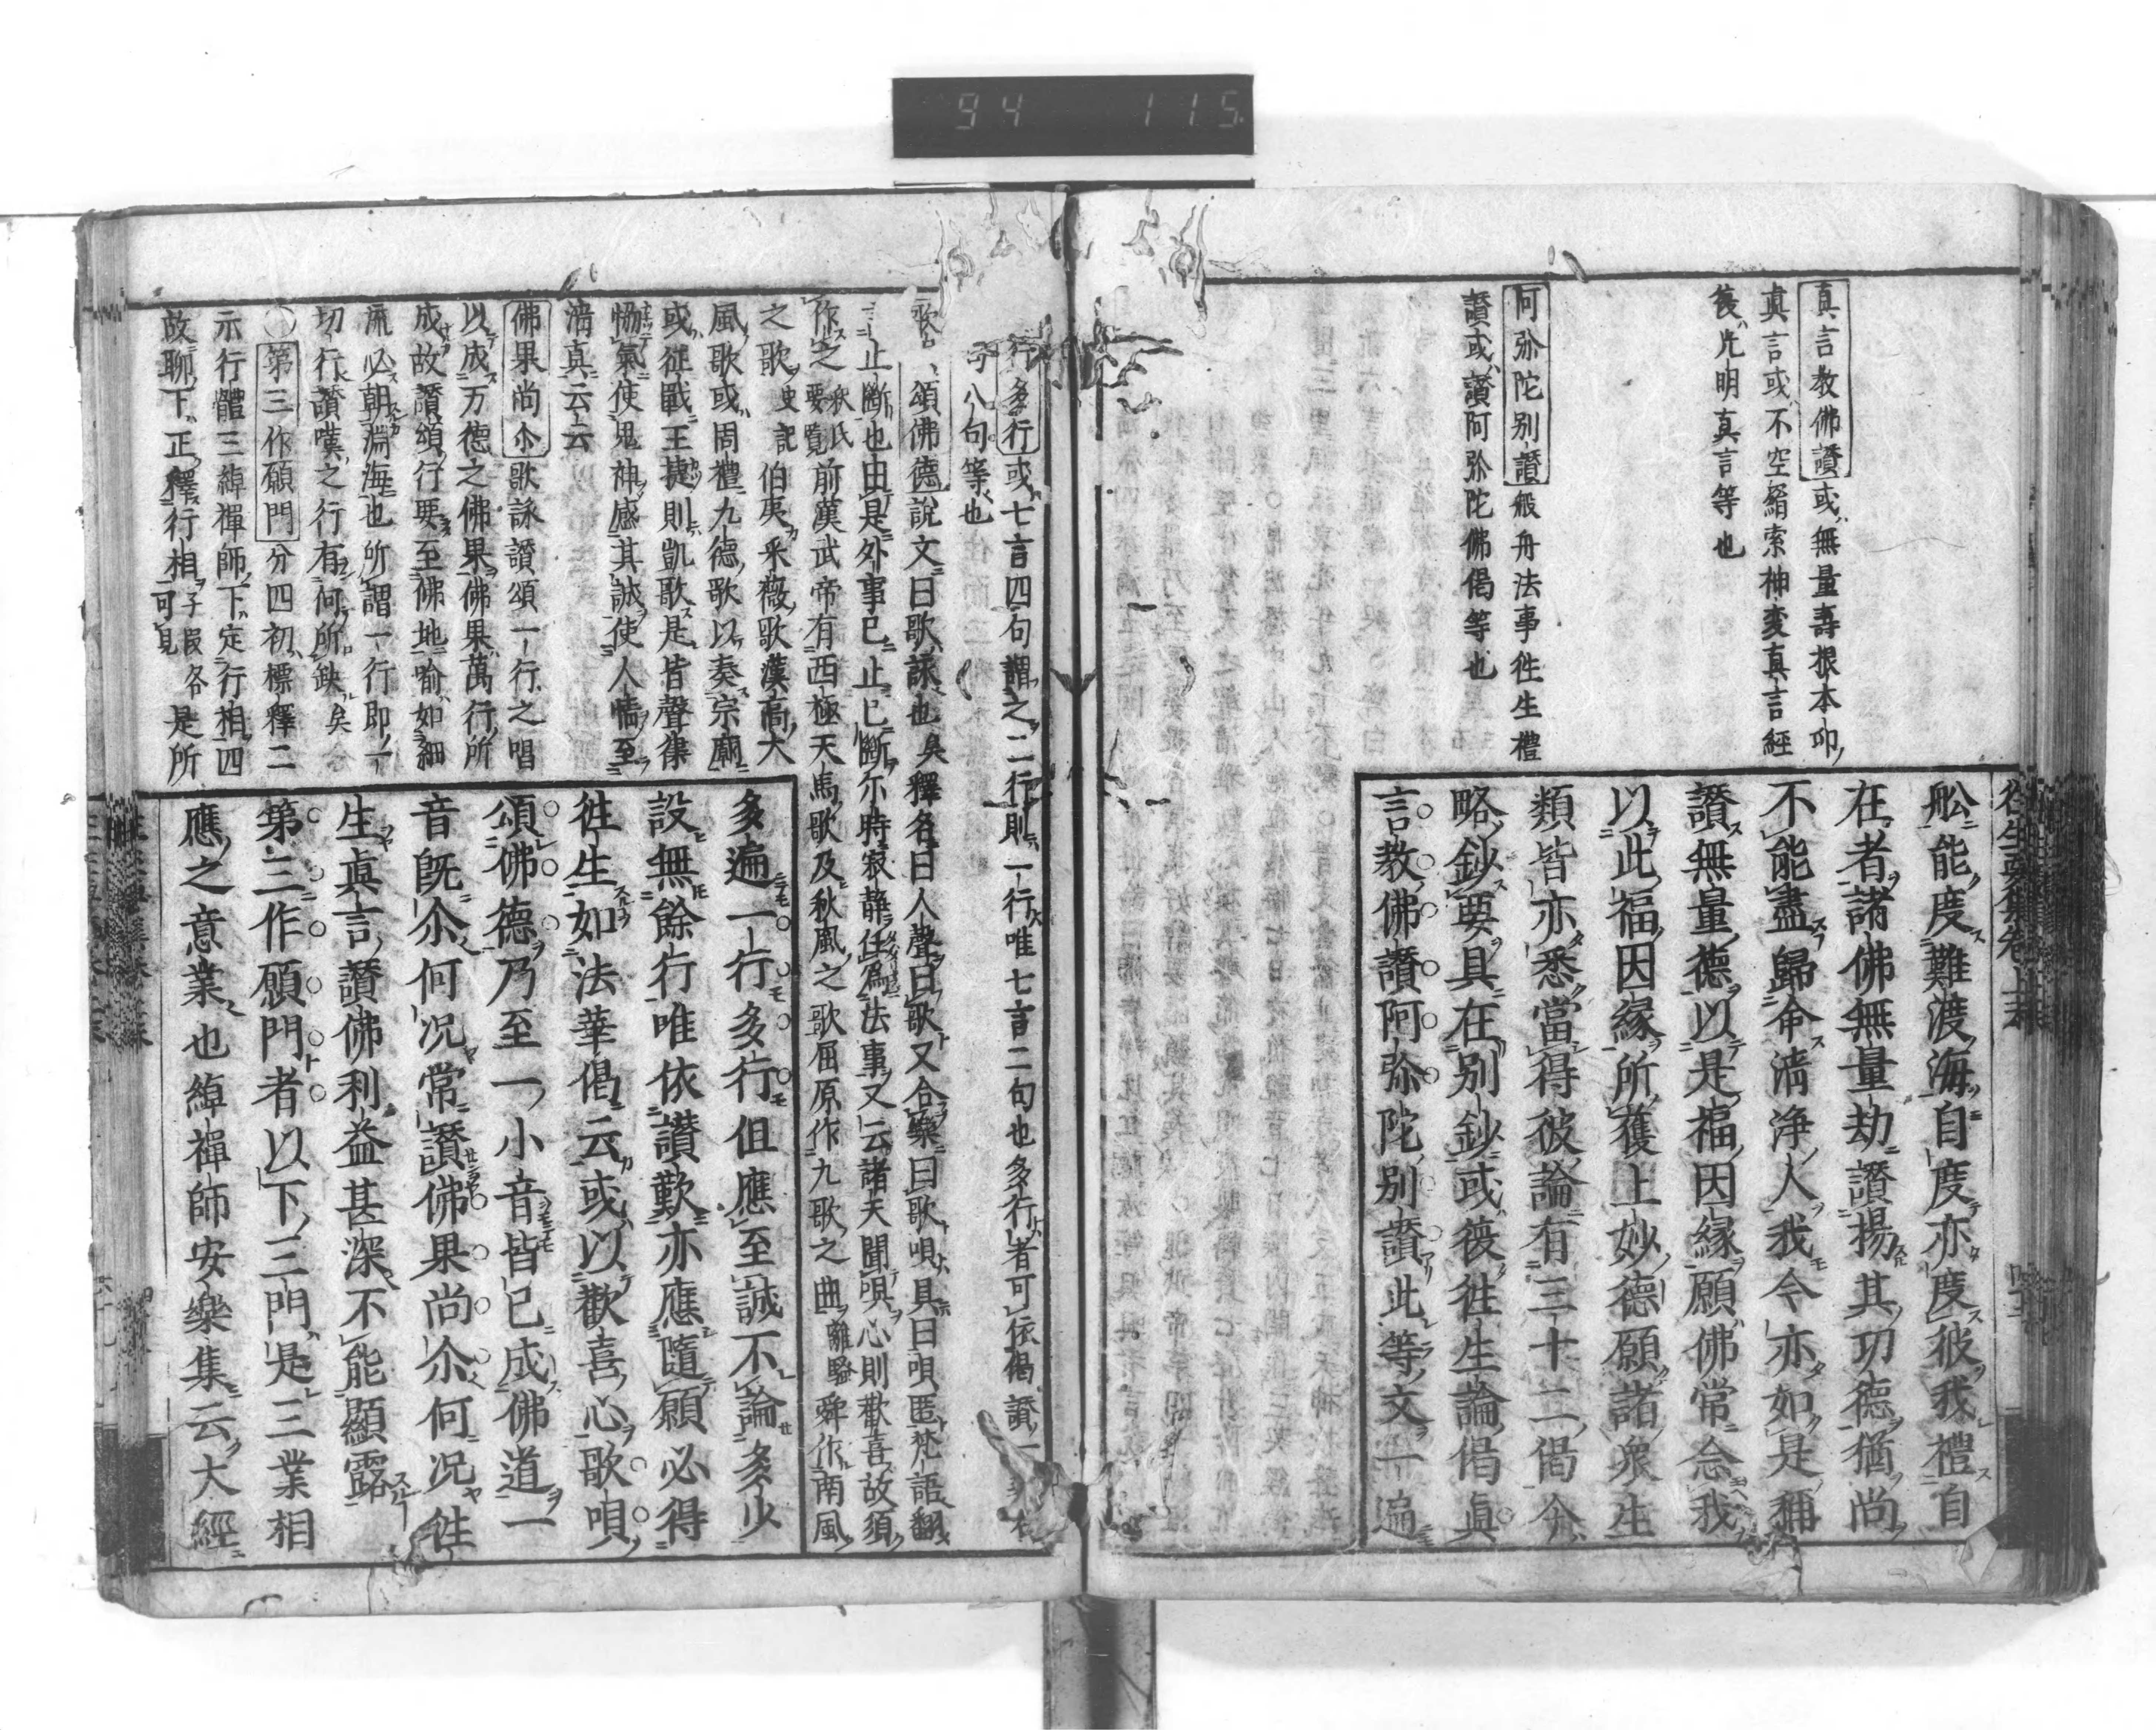 94 115
往生要集卷上末
真言教佛讃或無量壽根本印
真言或不空羂索神変真言經
後光明真言等也
阿弥陀別讃般舟法事徃生禮
讃或讃阿弥陀佛偈等也
舩能度難渡海自度亦度彼我禮自
在者諸佛無量劫讃揚其功德猶尚
不能盡歸命清浄人我今亦如是稱
讃無量德以是福因縁願佛常念我
以此福因縁所獲上妙德願諸衆生
類皆亦悉當得彼論有三十二偈今
略鈔要具在別鈔或後徃生論偈真
言教佛讃阿弥陀別讃此等文一遍
行多行或七言四句謂之二行則一行唯七言二句也多行者可依偈讃
八句等也
頌佛德說文曰歌詠也矣釋名曰人聲曰歌又合樂曰歌唄具曰唄匿梵語翻
止斷也由是外事已止已斷尓時寂静任為法事又云諸天聞唄心則歡喜故須
作之要覧前漢武帝有西極天馬歌及秋風之歌屈原作九歌之曲離騒舜作南風
之歌史記伯夷采薇歌漢高大
風歌或周禮九德歌以奏宗廟
或征戰王捷則凱歌是皆聲集
恊氣使鬼神感其誠使人情至
清真云云
佛果尚尒歌詠讃頌一行之唱
以成万德之佛果佛果萬行所
成故讃頌行要至佛地喻如細
流必朝淵海也所謂一行即一
切行讃嘆之行有何所缺矣
○第三作願門分四初標釋二
示行體三綽禪師下定行相四
故聊下正釋行相子段各可見是所
多遍一行多行但應至誠不論多少
設無餘行唯依讃歎亦應隨願必得
徃生如法華偈云或以歡喜心歌唄
頌佛德乃至一小音皆已成佛道一
音既尒何况常讃佛果尚尒何况徃
生真言讃佛利益甚深不能顯露
第三作願門者以下三門是三業相
應之意業也綽禪師安樂集云大經